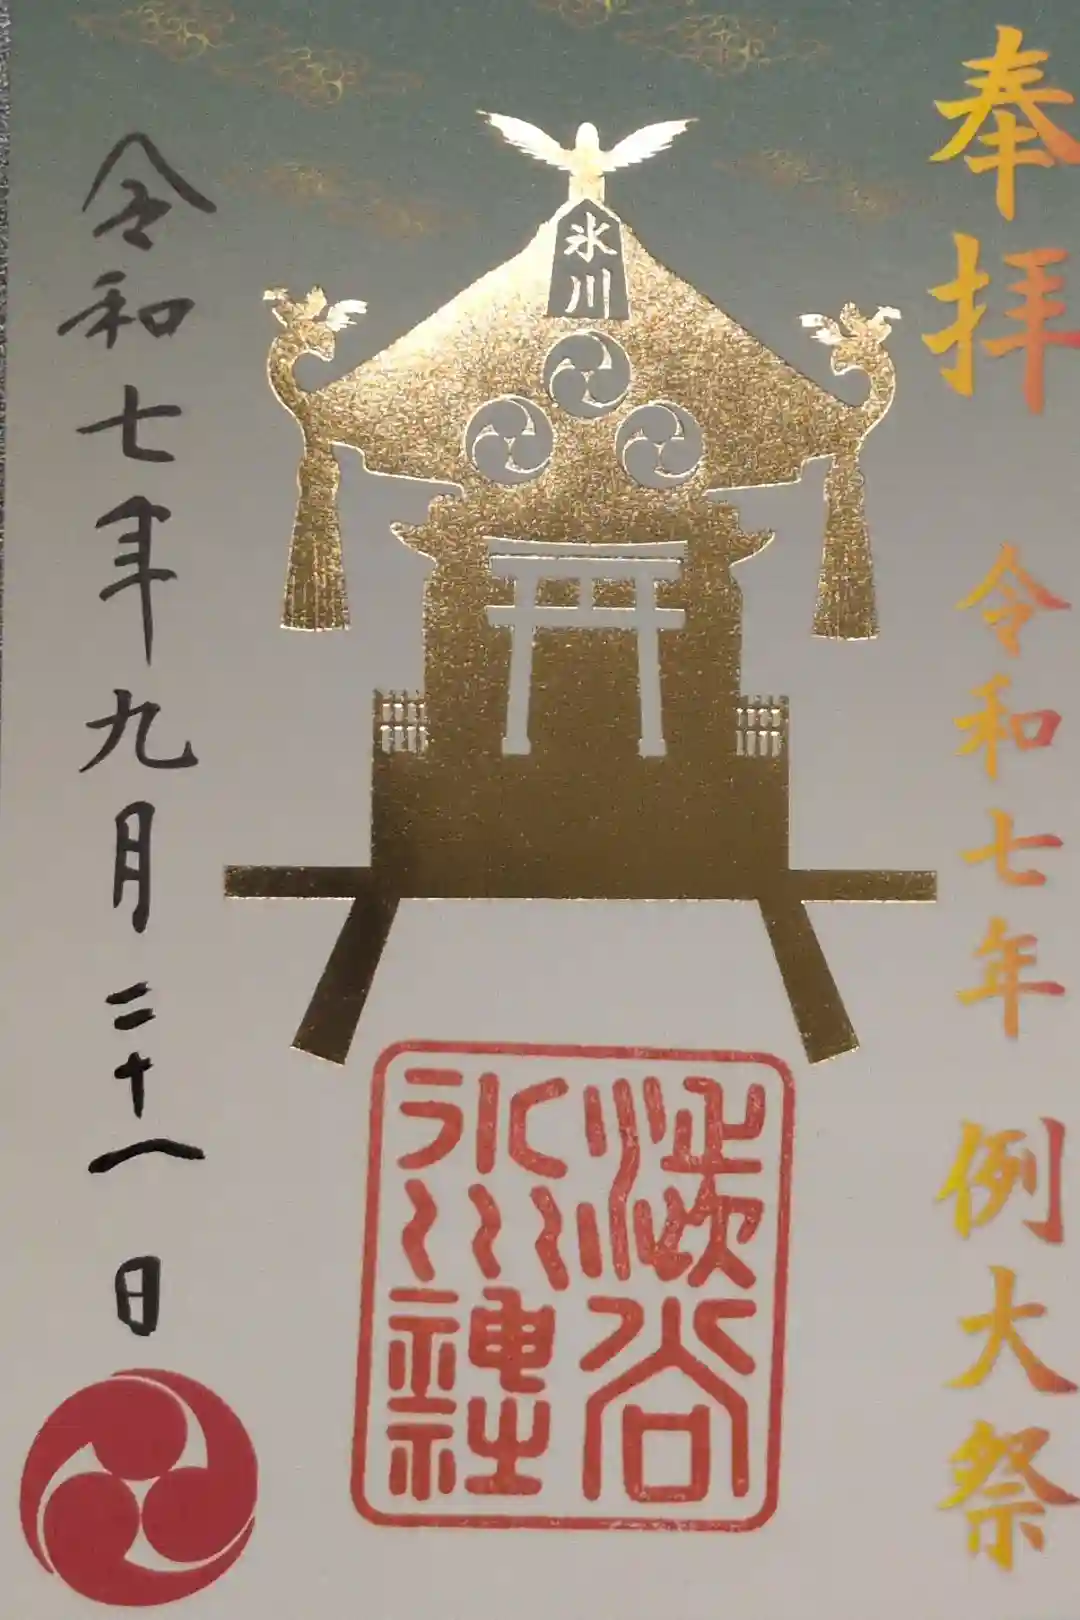 奉拝 令和七年 例大祭
氷川
渋谷
氷川
神社
令和七年九月二十八日